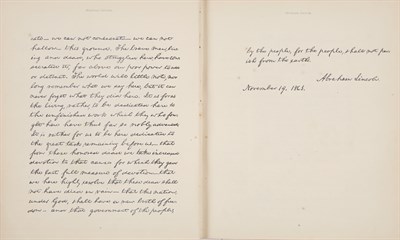 cate— we can not consecrate— we can not
hallow— this ground. The brave men, liv-
ing and dead, who struggled here, have con-
secrated it, far above our poor power to add
or detract. The world will little note, nor
long remember what we say here, but it can
never forget what they did here. It is for us
the living, rather, to be dedicated here to
the unfinished work which they who fou-
ght here have thus far so nobly advanced.
It is rather for us to be here dedicated to
the great task remaining before us— that
from these honored dead we take increased
devotion to that cause for which they gave
the last full measure of devotion— that
we here highly resolve that these dead shall
not have died in vain— that this nation,
under God, shall have a new birth of free-
dom— and that government of the people,
by the people, for the people, shall not per-
ish from the earth.
Abraham Lincoln.
November 19, 1863.